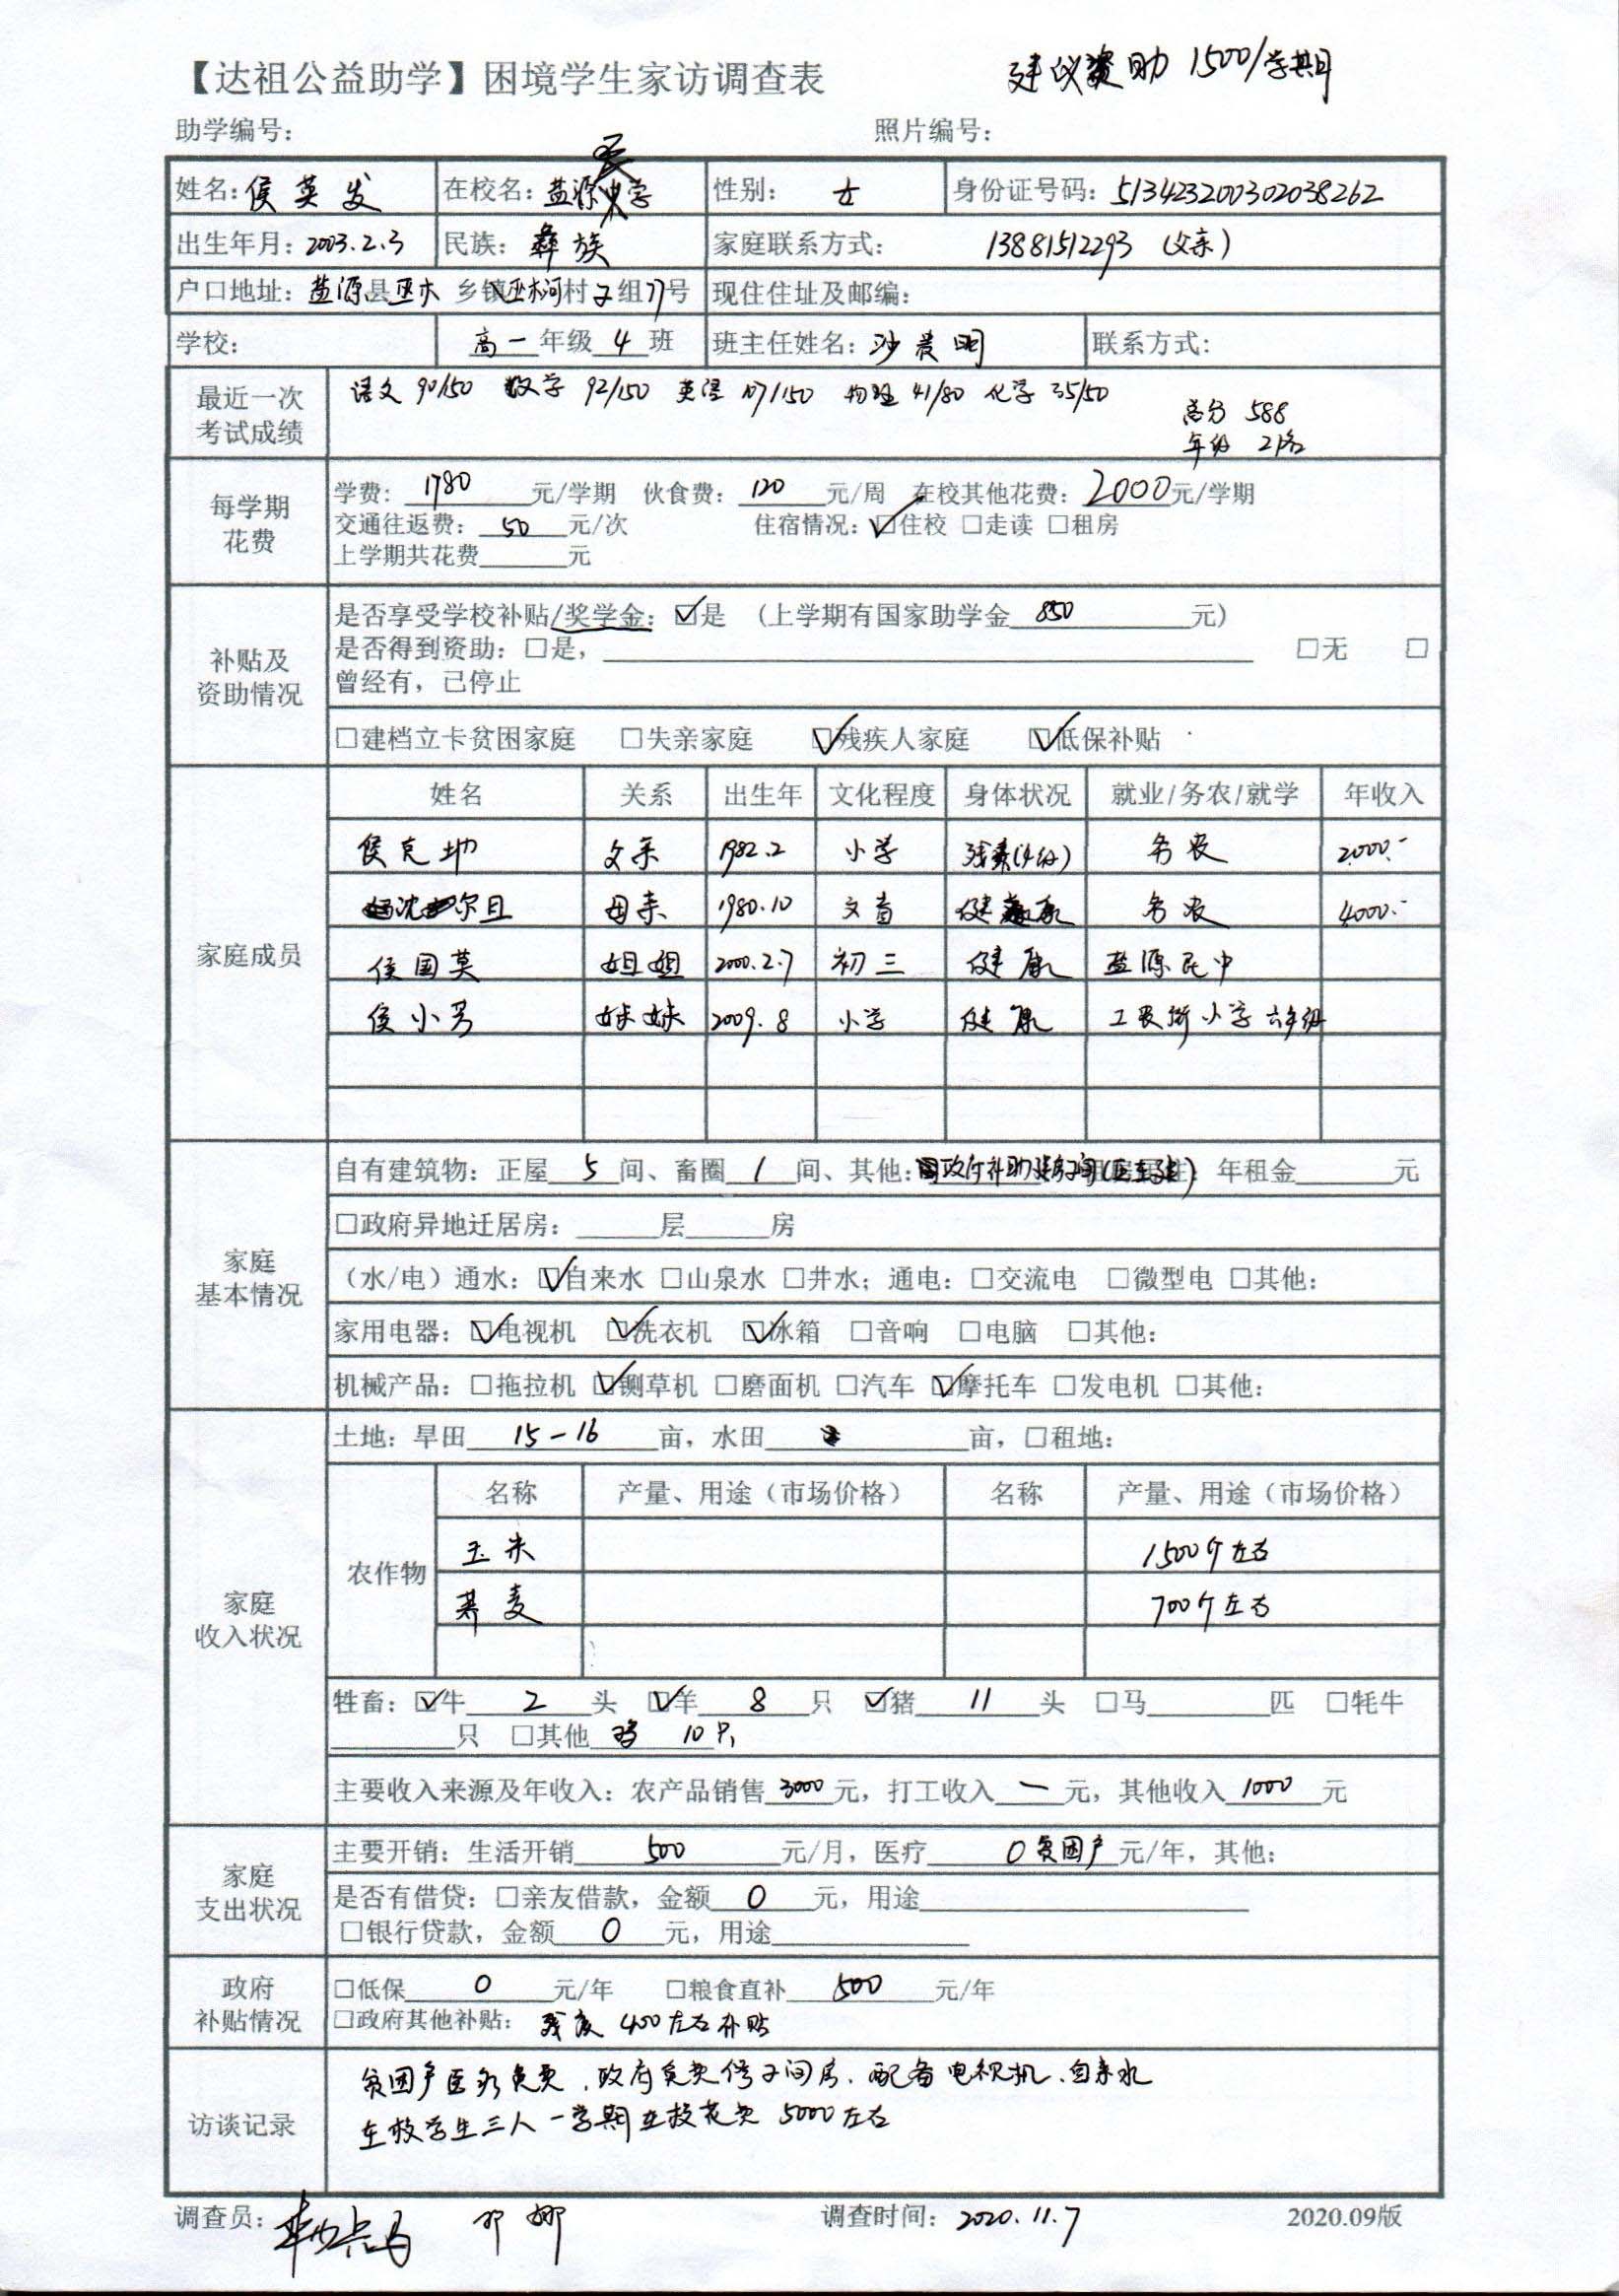 【达祖公益助学】困境学生家访调查表 建议资助 1500/学期
助学编号： 照片编号：
姓名：侯英发 在校名：盐源民中学 性别：女 身份证号码：513423200302038262
出生年月：2003.2.3 民族：彝族 家庭联系方式：13881512293（父亲）
户口地址：盐源县巫木乡镇巫木河村2组77号 现住住址及邮编：
学校： 高一年级 4 班 班主任姓名：沙贵明 联系方式：
最近一次考试成绩 语文 90/150 数学 92/150 英语 107/150 物理 41/80 化学 35/50
总分 588
年级 21名
每学期花费 学费：1780元/学期 伙食费：120元/周 在校其他花费：2000元/学期
交通往返费：50元/次 住宿情况：☑住校 □走读 □租房
上学期共花费______元
补贴及资助情况 是否享受学校补贴/奖学金：☑是 （上学期有国家助学金 850 元）
是否得到资助：□是，______ □无 □
曾经有，已停止
□建档立卡贫困家庭 □失亲家庭 ☑残疾人家庭 ☑低保补贴
家庭成员 姓名 关系 出生年 文化程度 身体状况 就业/务农/就学 年收入
侯克坳 父亲 1982.2 小学 残疾(4级) 务农 2000.-
沈尔且 母亲 1980.10 文盲 健康 务农 4000.-
侯国英 姐姐 2000.2.7 初三 健康 盐源民中
侯小芳 妹妹 2009.8 小学 健康 工农街小学 六年级
家庭基本情况 自有建筑物：正屋 5 间、畜圈 1 间、其他：政府补助建房2间 年租金______元
□政府异地迁居房：______层______房
（水/电）通水：☑自来水 □山泉水 □井水；通电：□交流电 □微型电 □其他：
家用电器：☑电视机 ☑洗衣机 ☑冰箱 □音响 □电脑 □其他：
机械产品：□拖拉机 ☑铡草机 □磨面机 □汽车 ☑摩托车 □发电机 □其他：
家庭收入状况 土地：旱田 15-16 亩，水田______亩，□租地：
农作物 名称 产量、用途（市场价格） 名称 产量、用途（市场价格）
玉米 1500斤左右
荞麦 700斤左右
牲畜：☑牛 2 头 ☑羊 8 只 ☑猪 11 头 □马______匹 □牦牛
______只 □其他 鸡 10只
主要收入来源及年收入：农产品销售 3000 元，打工收入 — 元，其他收入 1000 元
家庭支出状况 主要开销：生活开销 500 元/月，医疗 0 贫困户 元/年，其他：
是否有借贷：□亲友借款，金额 0 元，用途______
□银行贷款，金额 0 元，用途______
政府补贴情况 □低保 0 元/年 □粮食直补 500 元/年
□政府其他补贴：残疾 400左右补贴
访谈记录 贫困户医疗免费，政府免费修2间房、配备电视机、自来水
在校学生三人一学期在校花费 5000左右
调查员： 邓娜 调查时间：2020.11.7 2020.09版